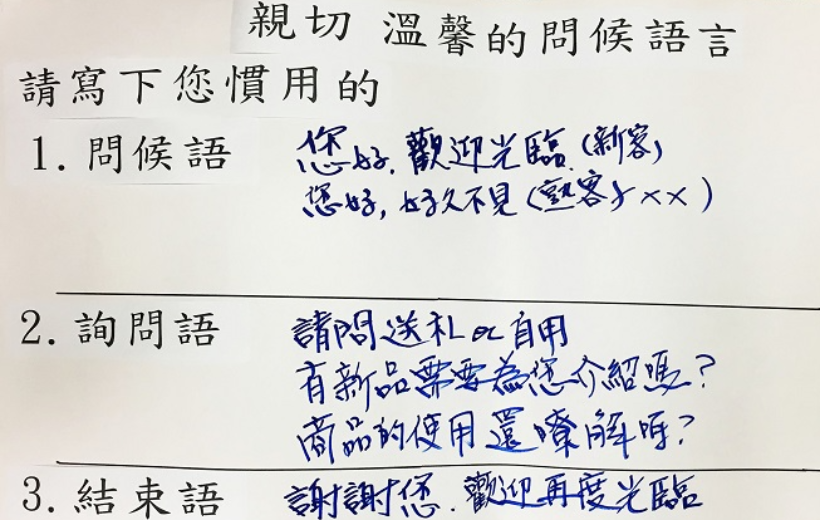 親切 溫馨的問候語言
請寫下您慣用的
1. 問候語 您好. 歡迎光臨. (新客)
您好, 好久不見 (熟客ㄚ××)
2. 詢問語 請問送礼or自用
有新品需要為您介紹嗎?
商品的使用還暸解嗎?
3. 結束語 謝謝您. 歡迎再度光臨